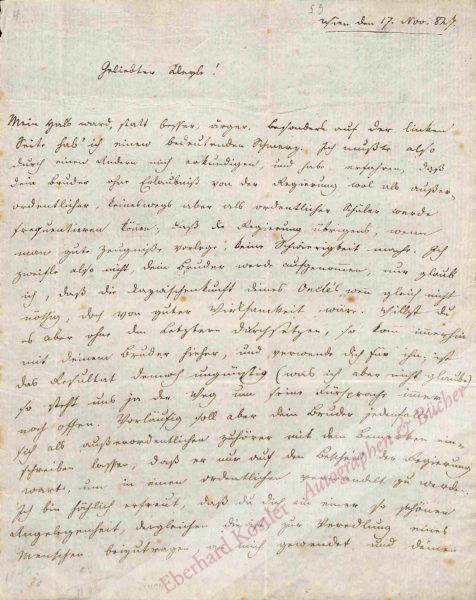 4
53
Wien den 17. Nov. 827.
Geliebter Kleyle!
Mein Hals ward, statt besser, ärger. Besonders auf der linken
Seite hab' ich einen bedeutenden Schmerz. Ich mußte also
durch einen Andern mich erkundigen, und hab erfahren, daß
dein Bruder ohne Erlaubniß von der Regierung wol als außer-
ordentlicher, keineswegs aber als ordentlicher Schüler werde
frequentieren können; daß die Regierung übrigens, wenn
man gute Zeugniße vorlege, keine Schwierigkeit mache. Ich
zweifle also nicht, dein Bruder werde aufgenommen, nur glaub
ich, daß die Dazwischenkunft deines Onkels wenn gleich nicht
nöthig, doch von guter Wirksamkeit wäre. Willst du
es aber ohne den Letztern durchsetzen, so komm immerhin
mit deinem Bruder hieher, und verwende dich für ihn; ist
das Resultat dennoch ungünstig (was ich aber nicht glaube)
so steht uns ja der Weg um seine Fürsprache immer
noch offen. Vorläufig soll aber dein Bruder jedenfalls
sich als außerordentlichen Zuhörer mit dem Bemerken ein-
schreiben lassen, daß er nur auf den Bescheid der Regierung
wart, um in einen ordentlichen verwandelt zu werden.
Ich bin höchlich erfreut, daß du dich in einer so schönen
Angelegenheit, dergleichen die ist zur Veredlung eines
Menschen beizutragen an mich gewendet und deinen
Eberhard Köstler Autographen & Bücher